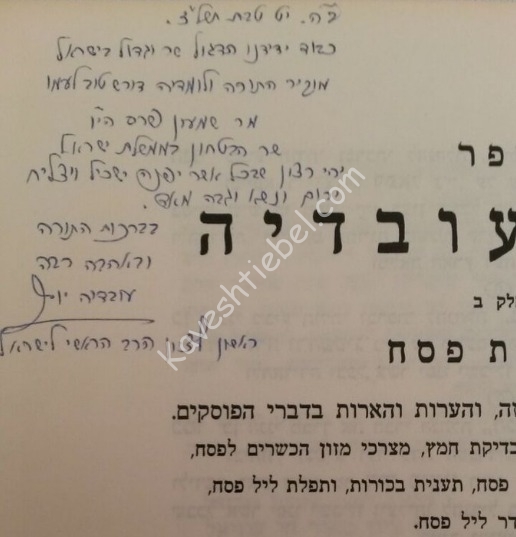 ב"ה. יט טבת תשל"ז.
כבוד ידידנו הדגול שר וגדול בישראל
מוקיר התורה ולומדיה דורש טוב לעמו
מר שמעון פרס הי"ו
שר הבטחון בממשלת ישראל
יהי רצון שבכל אשר יפנה ישכיל ויצליח
ירום ונשא וגבה מאד.
בברכות התורה
ובאהבה רבה
עובדיה יוסף
ראשון לציון הרב הראשי לישראל
פר
עובדיה
לק ב
ת פסח
ה, והערות והארות בדברי הפוסקים.
בדיקת חמץ, מצרכי מזון הכשרים לפסח,
פסח, תענית בכורות, ותפלת ליל פסח.
דר ליל פסח.
kaveshtiebel.com